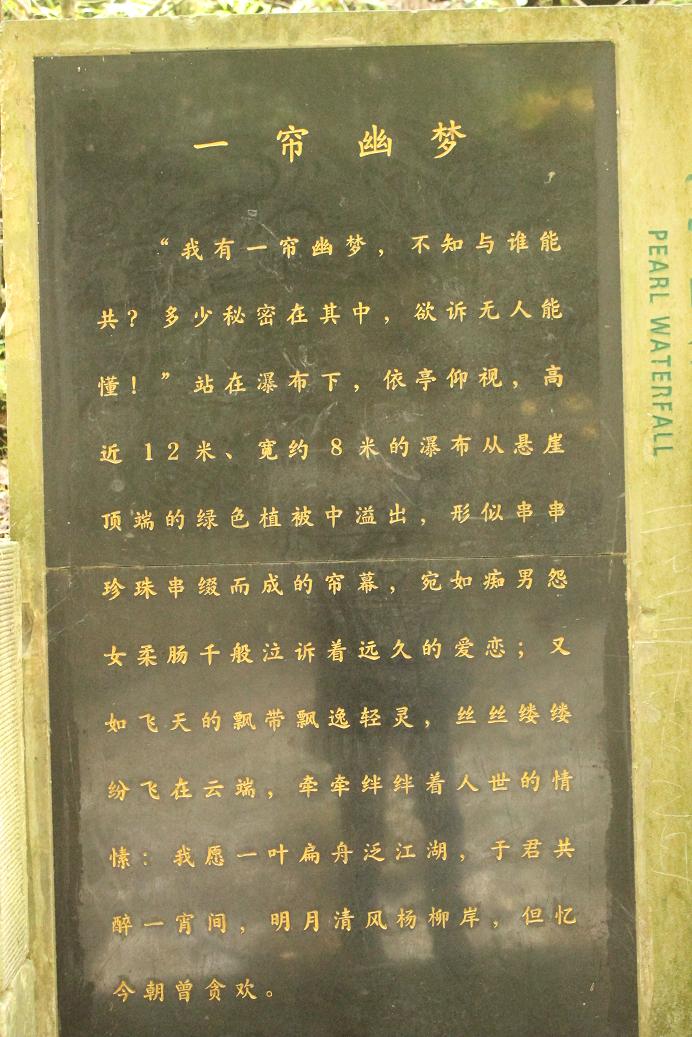 一帘幽梦
“我有一帘幽梦，不知与谁能
共？多少秘密在其中，欲诉无人能
懂！”站在瀑布下，依亭仰视，高
近12米、宽约8米的瀑布从悬崖
顶端的绿色植被中溢出，形似串串
珍珠串缀而成的帘幕，宛如痴男怨
女柔肠千般泣诉着远久的爱恋；又
如飞天的飘带飘逸轻灵，丝丝缕缕
纷飞在云端，牵牵绊绊着人世的情
愫：我愿一叶扁舟泛江湖，于君共
醉一宵间，明月清风杨柳岸，但忆
今朝曾贪欢。
PEARL WATERFALL